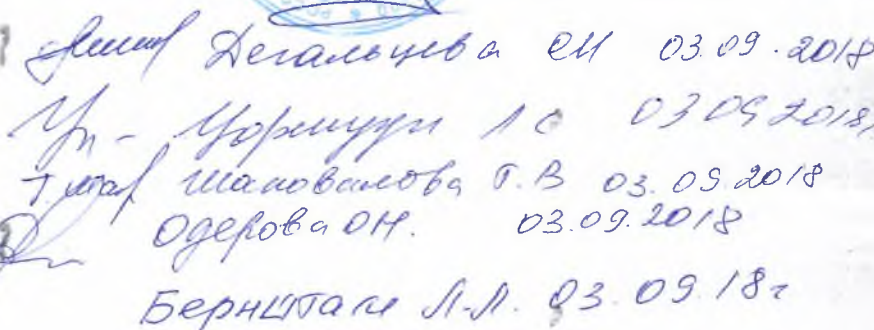 Дегальцева ЕИ 03.09.2018
Л С 03 09 2018
Шаповалова Т. В 03.09.2018
Одерова О.Н. 03.09.2018
Бернштам Л.Л. 03.09.18г